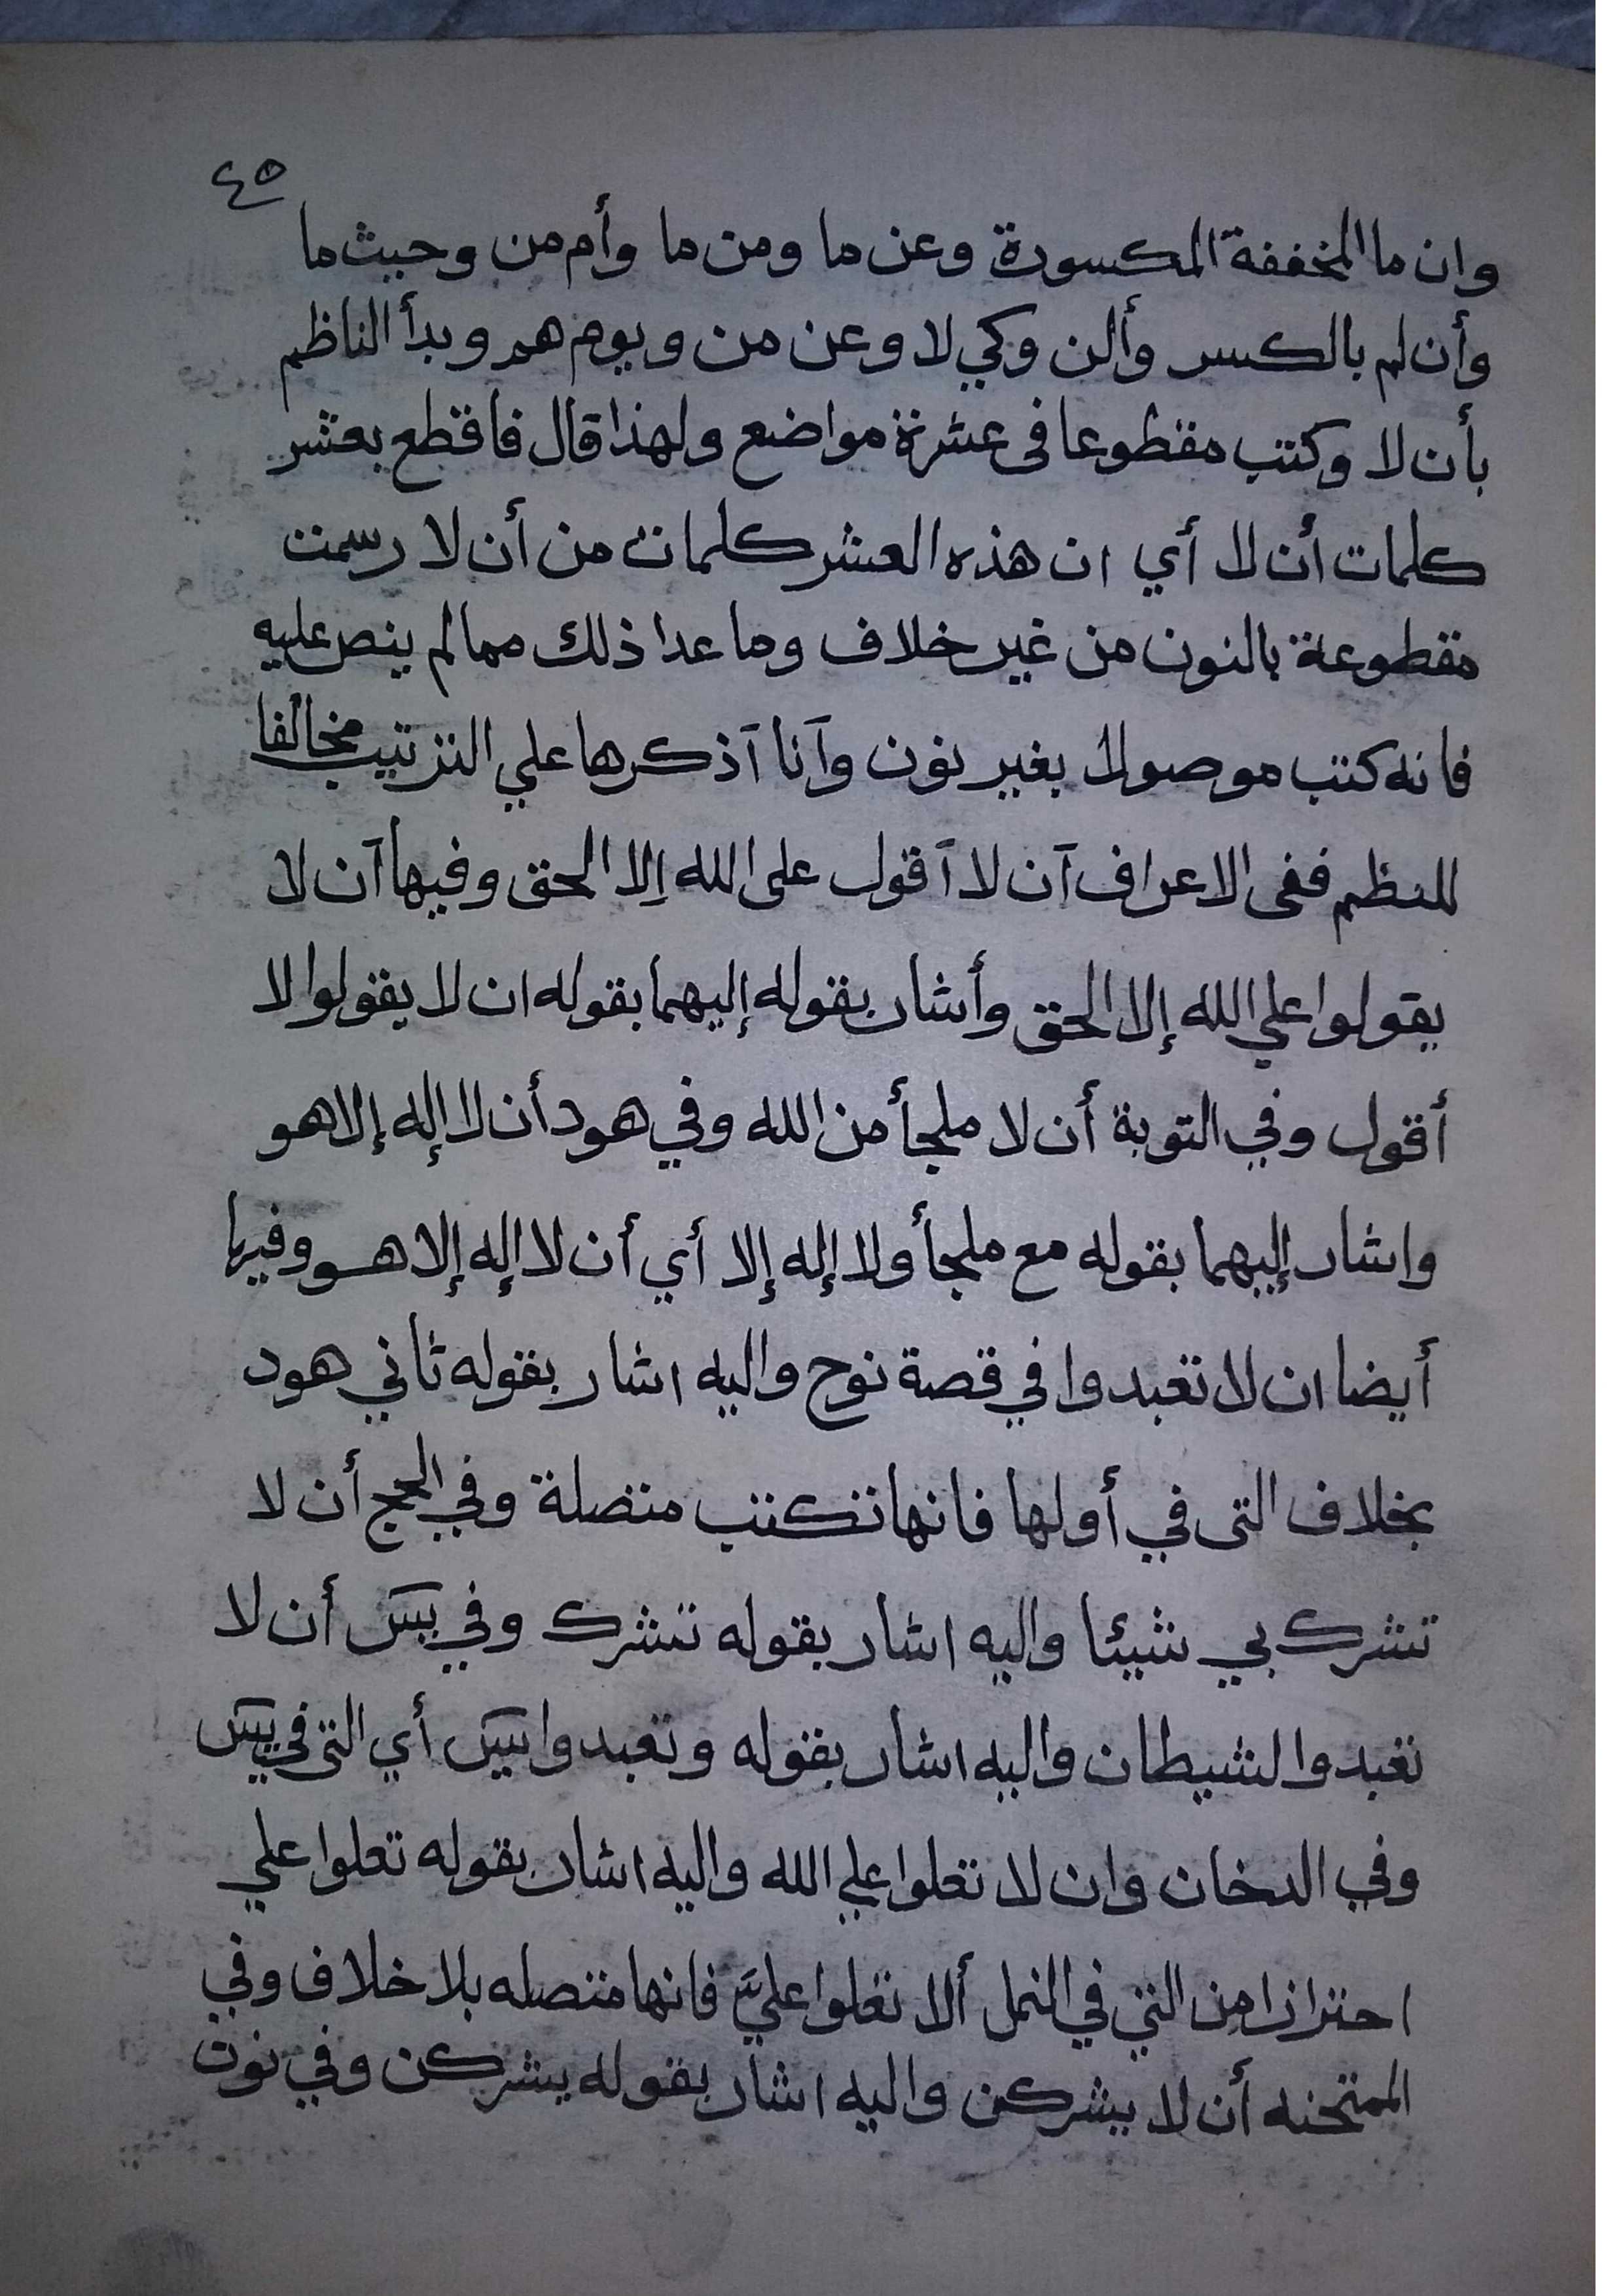 ٤٥
وان ما المخففة المكسورة وعن ما ومن ما وأم من وحيث ما
وأن لم بالكسر وألن وكي لا وعن من ويوم هم وبدأ الناظم
بأن لا وكتب مقطوعا فى عشرة مواضع ولهذا قال فاقطع بعشر
كلمات أن لا أي ان هذه العشر كلمات من أن لا رسمت
مقطوعة بالنون من غير خلاف وما عدا ذلك مما لم ينص عليه
فانه كتب موصولا بغير نون وآنا آذكرها علي الترتيب مخالفا
للنظم ففى الاعراف آن لا آقول على الله إلا الحق وفيها آن لا
يقولوا علي الله إلا الحق وأشار بقوله إليهما بقوله ان لا يقولوا لا
أقول وفي التوبة أن لا ملجأ من الله وفي هود أن لا إله إلا هو
واشار إليهما بقوله مع ملجأ ولا إله إلا أي أن لا إله إلا هو وفيها
أيضا ان لا تعبدوا في قصة نوح واليه اشار بقوله ثاني هود
بخلاف التى في أولها فانها تكتب متصلة وفي الحج أن لا
تشرك بي شيئا واليه اشار بقوله تشرك وفي يس أن لا
تعبدوا لشيطان واليه اشار بقوله وتعبدوا يس أي التى في يس
وفي الدخان وان لا تعلوا علي الله واليه اشار بقوله تعلوا علي
احترازا من التي في النمل ألا تعلوا عليَّ فانها متصله بلا خلاف وفي
الممتحنه أن لا يشركن واليه اشار بقوله يشركن وفي نون